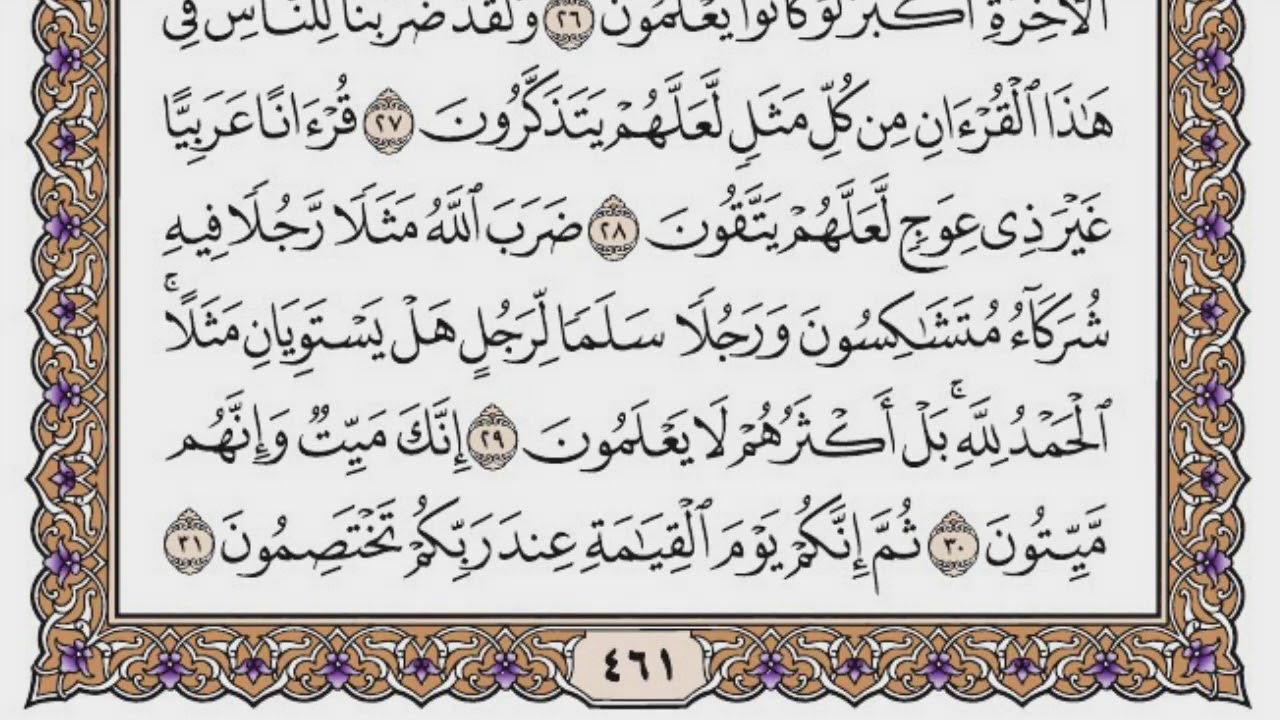 ٱلۡأٓخِرَةِ أَكۡبَرُ لَوۡ كَانُواْ يَعۡلَمُونَ ٢٦ وَلَقَدۡ ضَرَبۡنَا لِلنَّاسِ فِي
هَٰذَا ٱلۡقُرۡءَانِ مِن كُلِّ مَثَلٖ لَّعَلَّهُمۡ يَتَذَكَّرُونَ ٢٧ قُرۡءَانًا عَرَبِيًّا
غَيۡرَ ذِي عِوَجٖ لَّعَلَّهُمۡ يَتَّقُونَ ٢٨ ضَرَبَ ٱللَّهُ مَثَلٗا رَّجُلٗا فِيهِ
شُرَكَآءُ مُتَشَٰكِسُونَ وَرَجُلٗا سَلَمٗا لِّرَجُلٍ هَلۡ يَسۡتَوِيَانِ مَثَلًاۚ
ٱلۡحَمۡدُ لِلَّهِۚ بَلۡ أَكۡثَرُهُمۡ لَا يَعۡلَمُونَ ٢٩ إِنَّكَ مَيِّتٞ وَإِنَّهُم
مَّيِّتُونَ ٣٠ ثُمَّ إِنَّكُمۡ يَوۡمَ ٱلۡقِيَٰمَةِ عِندَ رَبِّكُمۡ تَخۡتَصِمُونَ ٣١
٤٦١